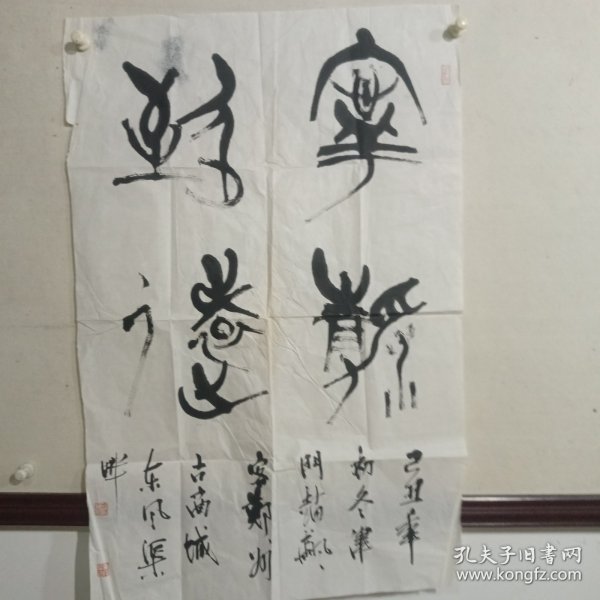 寧靜
致遠
己丑年
初冬筆
門楚瓢
客鄭州
古商城
东风渠
畔
孔夫子旧书网
www.kongfz.com